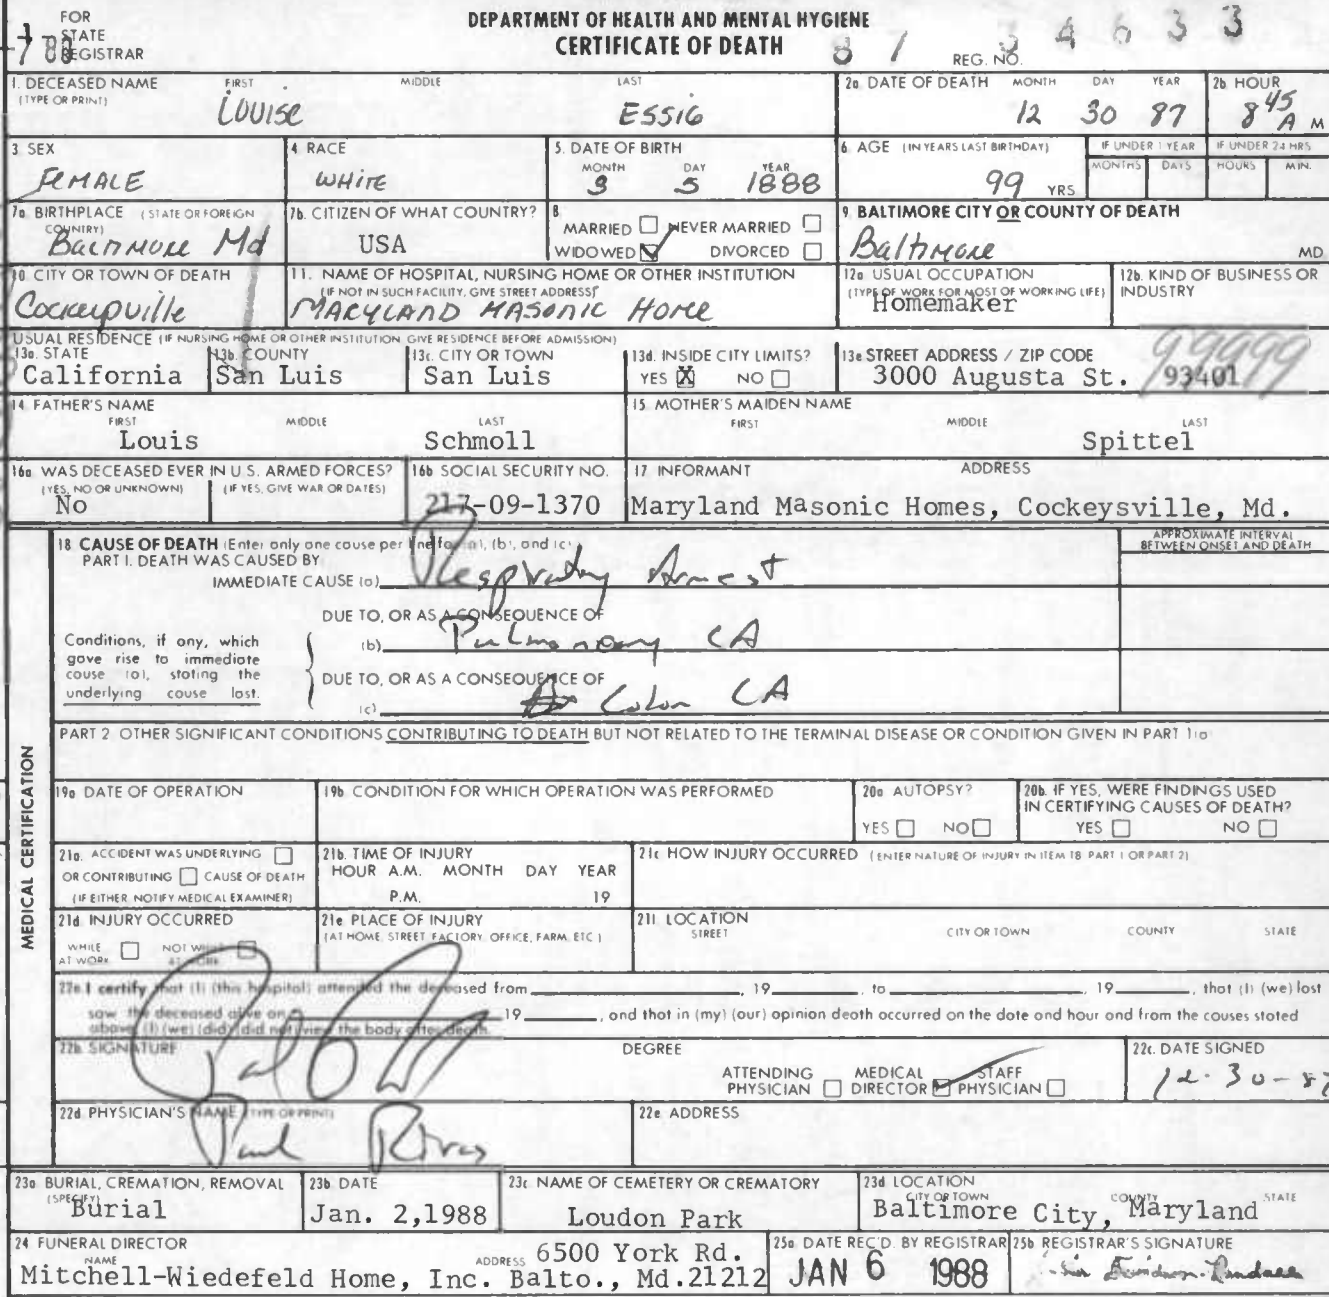 FOR
STATE
REGISTRAR
DEPARTMENT OF HEALTH AND MENTAL HYGIENE
CERTIFICATE OF DEATH
87 34633
REG. NO.
1. DECEASED NAME FIRST MIDDLE LAST
(TYPE OR PRINT)
Louise Essig
2a. DATE OF DEATH MONTH DAY YEAR
12 30 87
2b. HOUR
8 45 A M
3. SEX
FEMALE
4. RACE
WHITE
5. DATE OF BIRTH
MONTH DAY YEAR
3 5 1888
6. AGE (IN YEARS LAST BIRTHDAY)
99 YRS
IF UNDER 1 YEAR
MONTHS DAYS
IF UNDER 24 HRS
HOURS MIN.
7a. BIRTHPLACE (STATE OR FOREIGN
COUNTRY)
Baltimore Md
7b. CITIZEN OF WHAT COUNTRY?
USA
8.
MARRIED NEVER MARRIED
WIDOWED DIVORCED
9. BALTIMORE CITY OR COUNTY OF DEATH
Baltimore MD
10. CITY OR TOWN OF DEATH
11. NAME OF HOSPITAL, NURSING HOME OR OTHER INSTITUTION
(IF NOT IN SUCH FACILITY, GIVE STREET ADDRESS)
MARYLAND MASONIC HOME
12a. USUAL OCCUPATION
(TYPE OF WORK FOR MOST OF WORKING LIFE)
Homemaker
12b. KIND OF BUSINESS OR
INDUSTRY
USUAL RESIDENCE (IF NURSING HOME OR OTHER INSTITUTION GIVE RESIDENCE BEFORE ADMISSION)
13a. STATE
California
13b. COUNTY
San Luis
13c. CITY OR TOWN
San Luis
13d. INSIDE CITY LIMITS?
YES X NO
13e STREET ADDRESS / ZIP CODE
99999
3000 Augusta St. 93401
14. FATHER'S NAME
FIRST MIDDLE LAST
Louis Schmoll
15. MOTHER'S MAIDEN NAME
FIRST MIDDLE LAST
Spittel
16a. WAS DECEASED EVER IN U.S. ARMED FORCES?
(YES, NO OR UNKNOWN) (IF YES, GIVE WAR OR DATES)
No
16b SOCIAL SECURITY NO.
217-09-1370
17. INFORMANT ADDRESS
Maryland Masonic Homes, Cockeysville, Md.
18 CAUSE OF DEATH (Enter only one cause per line for (a), (b), and (c)
PART I. DEATH WAS CAUSED BY:
IMMEDIATE CAUSE (a) Respiratory Arrest
APPROXIMATE INTERVAL
BETWEEN ONSET AND DEATH
Conditions, if any, which
gave rise to immediate
cause (a), stating the
underlying cause last.
DUE TO, OR AS A CONSEQUENCE OF
(b) Pulmonary CA
DUE TO, OR AS A CONSEQUENCE OF
(c) Colon CA
PART 2 OTHER SIGNIFICANT CONDITIONS CONTRIBUTING TO DEATH BUT NOT RELATED TO THE TERMINAL DISEASE OR CONDITION GIVEN IN PART 1(a)
MEDICAL CERTIFICATION
19a DATE OF OPERATION
19b CONDITION FOR WHICH OPERATION WAS PERFORMED
20a AUTOPSY?
YES NO
20b. IF YES, WERE FINDINGS USED
IN CERTIFYING CAUSES OF DEATH?
YES NO
21a. ACCIDENT WAS UNDERLYING
OR CONTRIBUTING CAUSE OF DEATH
(IF EITHER NOTIFY MEDICAL EXAMINER)
21b. TIME OF INJURY
HOUR A.M. MONTH DAY YEAR
P.M. 19
21c HOW INJURY OCCURRED (ENTER NATURE OF INJURY IN ITEM 18 PART 1 OR PART 2)
21d INJURY OCCURRED
WHILE AT WORK NOT WHILE AT WORK
21e PLACE OF INJURY
(AT HOME, STREET, FACTORY, OFFICE, FARM, ETC.)
21f. LOCATION
STREET CITY OR TOWN COUNTY STATE
22a. I certify that (I) (this hospital) attended the deceased from , 19 , to , 19 , that (I) (we) lost
saw the deceased alive on 19 , and that in (my) (our) opinion death occurred on the date and hour and from the causes stated
above, (I) (we) (did) (did not) view the body after death.
22b. SIGNATURE DEGREE
ATTENDING PHYSICIAN MEDICAL DIRECTOR STAFF PHYSICIAN
22c. DATE SIGNED
12-30-87
22d. PHYSICIAN'S NAME (TYPE OR PRINT)
Paul Rivas
22e ADDRESS
23a BURIAL, CREMATION, REMOVAL
(SPECIFY)
Burial
23b DATE
Jan. 2,1988
23c NAME OF CEMETERY OR CREMATORY
Loudon Park
23d LOCATION
CITY OR TOWN COUNTY STATE
Baltimore City, Maryland
24 FUNERAL DIRECTOR
NAME ADDRESS
6500 York Rd.
Mitchell-Wiedefeld Home, Inc. Balto., Md.21212
25a DATE REC'D. BY REGISTRAR
JAN 6 1988
25b REGISTRAR'S SIGNATURE